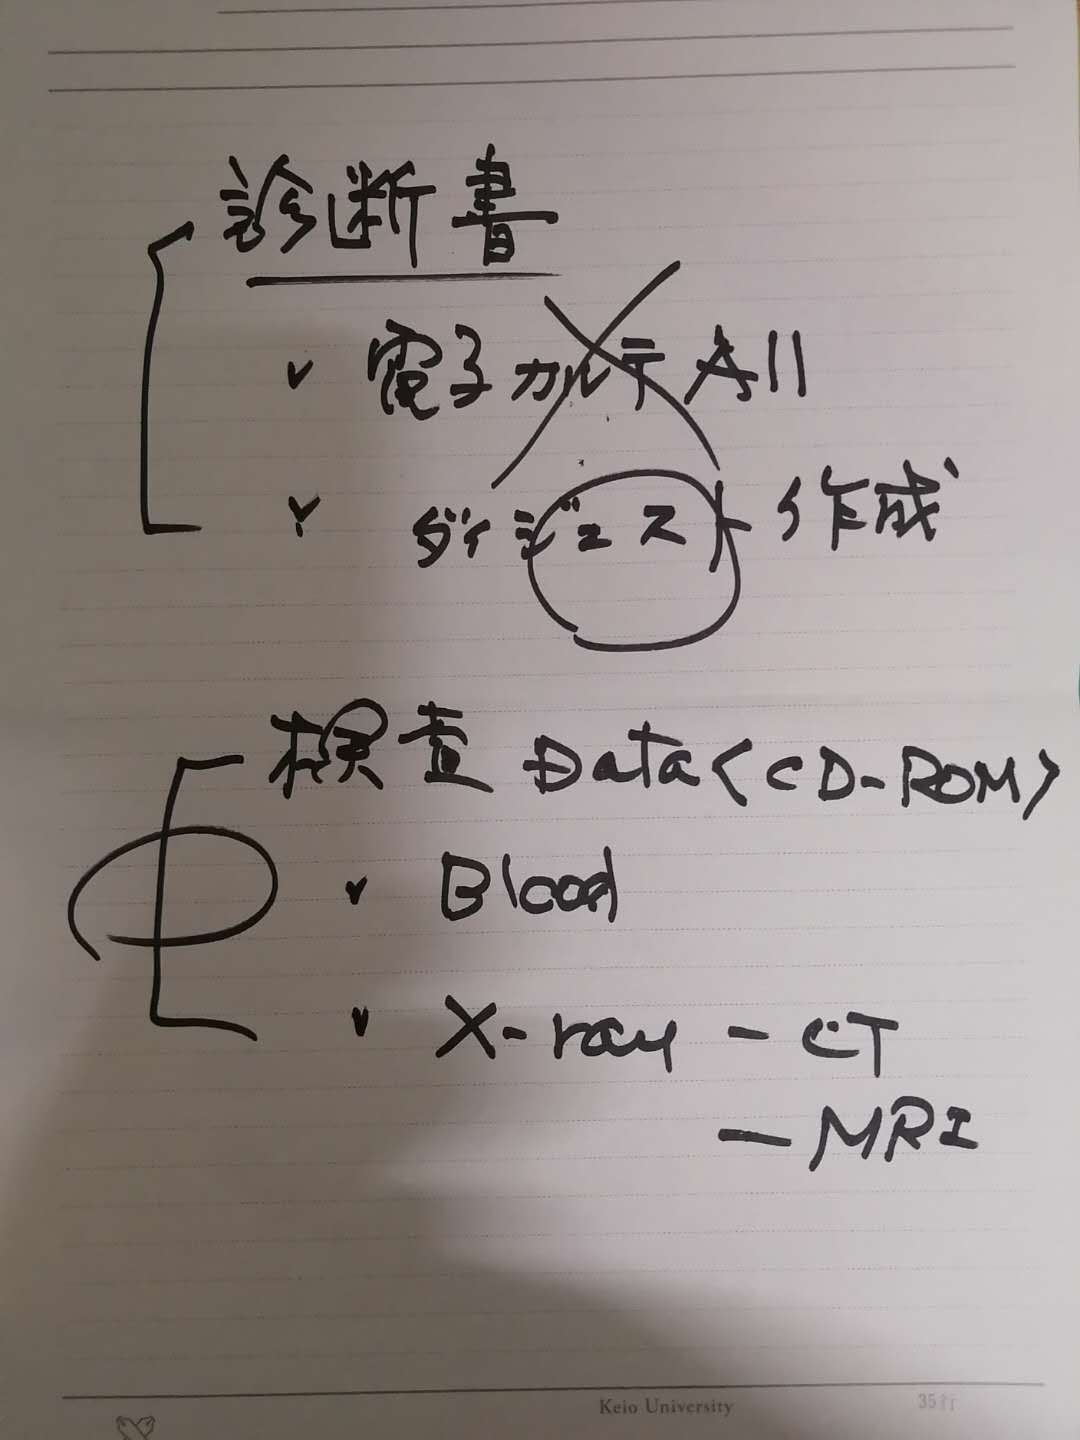 診断書
✓ 電子カルテ All
✓ ダイジェスト作成
検査 Data <CD-ROM>
✓ Blood
✓ X-ray - CT
- MRI
Keio University 35行